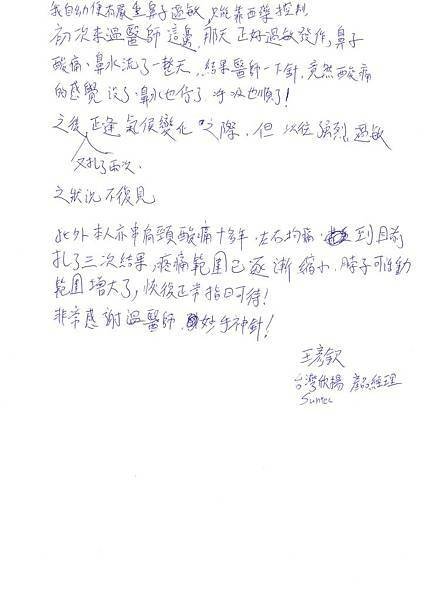 我自幼便有嚴重鼻子過敏,只能靠西藥控制
初次來溫醫師這裏,那天正好過敏發作,鼻子
酸痛、鼻水流了一整天,結果醫師一下針,竟然酸痛
的感覺沒了,鼻水也停了,呼吸也順了!
之後,正逢氣候變化之際,但以往強烈過敏
又扎了兩次.
之狀況不復見
此外本人亦患肩頸酸痛十多年,左右均痛,到目前
扎了三次結果,疼痛範圍已逐漸縮小,脖子可活動
範圍增大了,恢復正常指日可待!
非常感謝溫醫師妙手神針!
王彥欽
台灣欣揚 經理